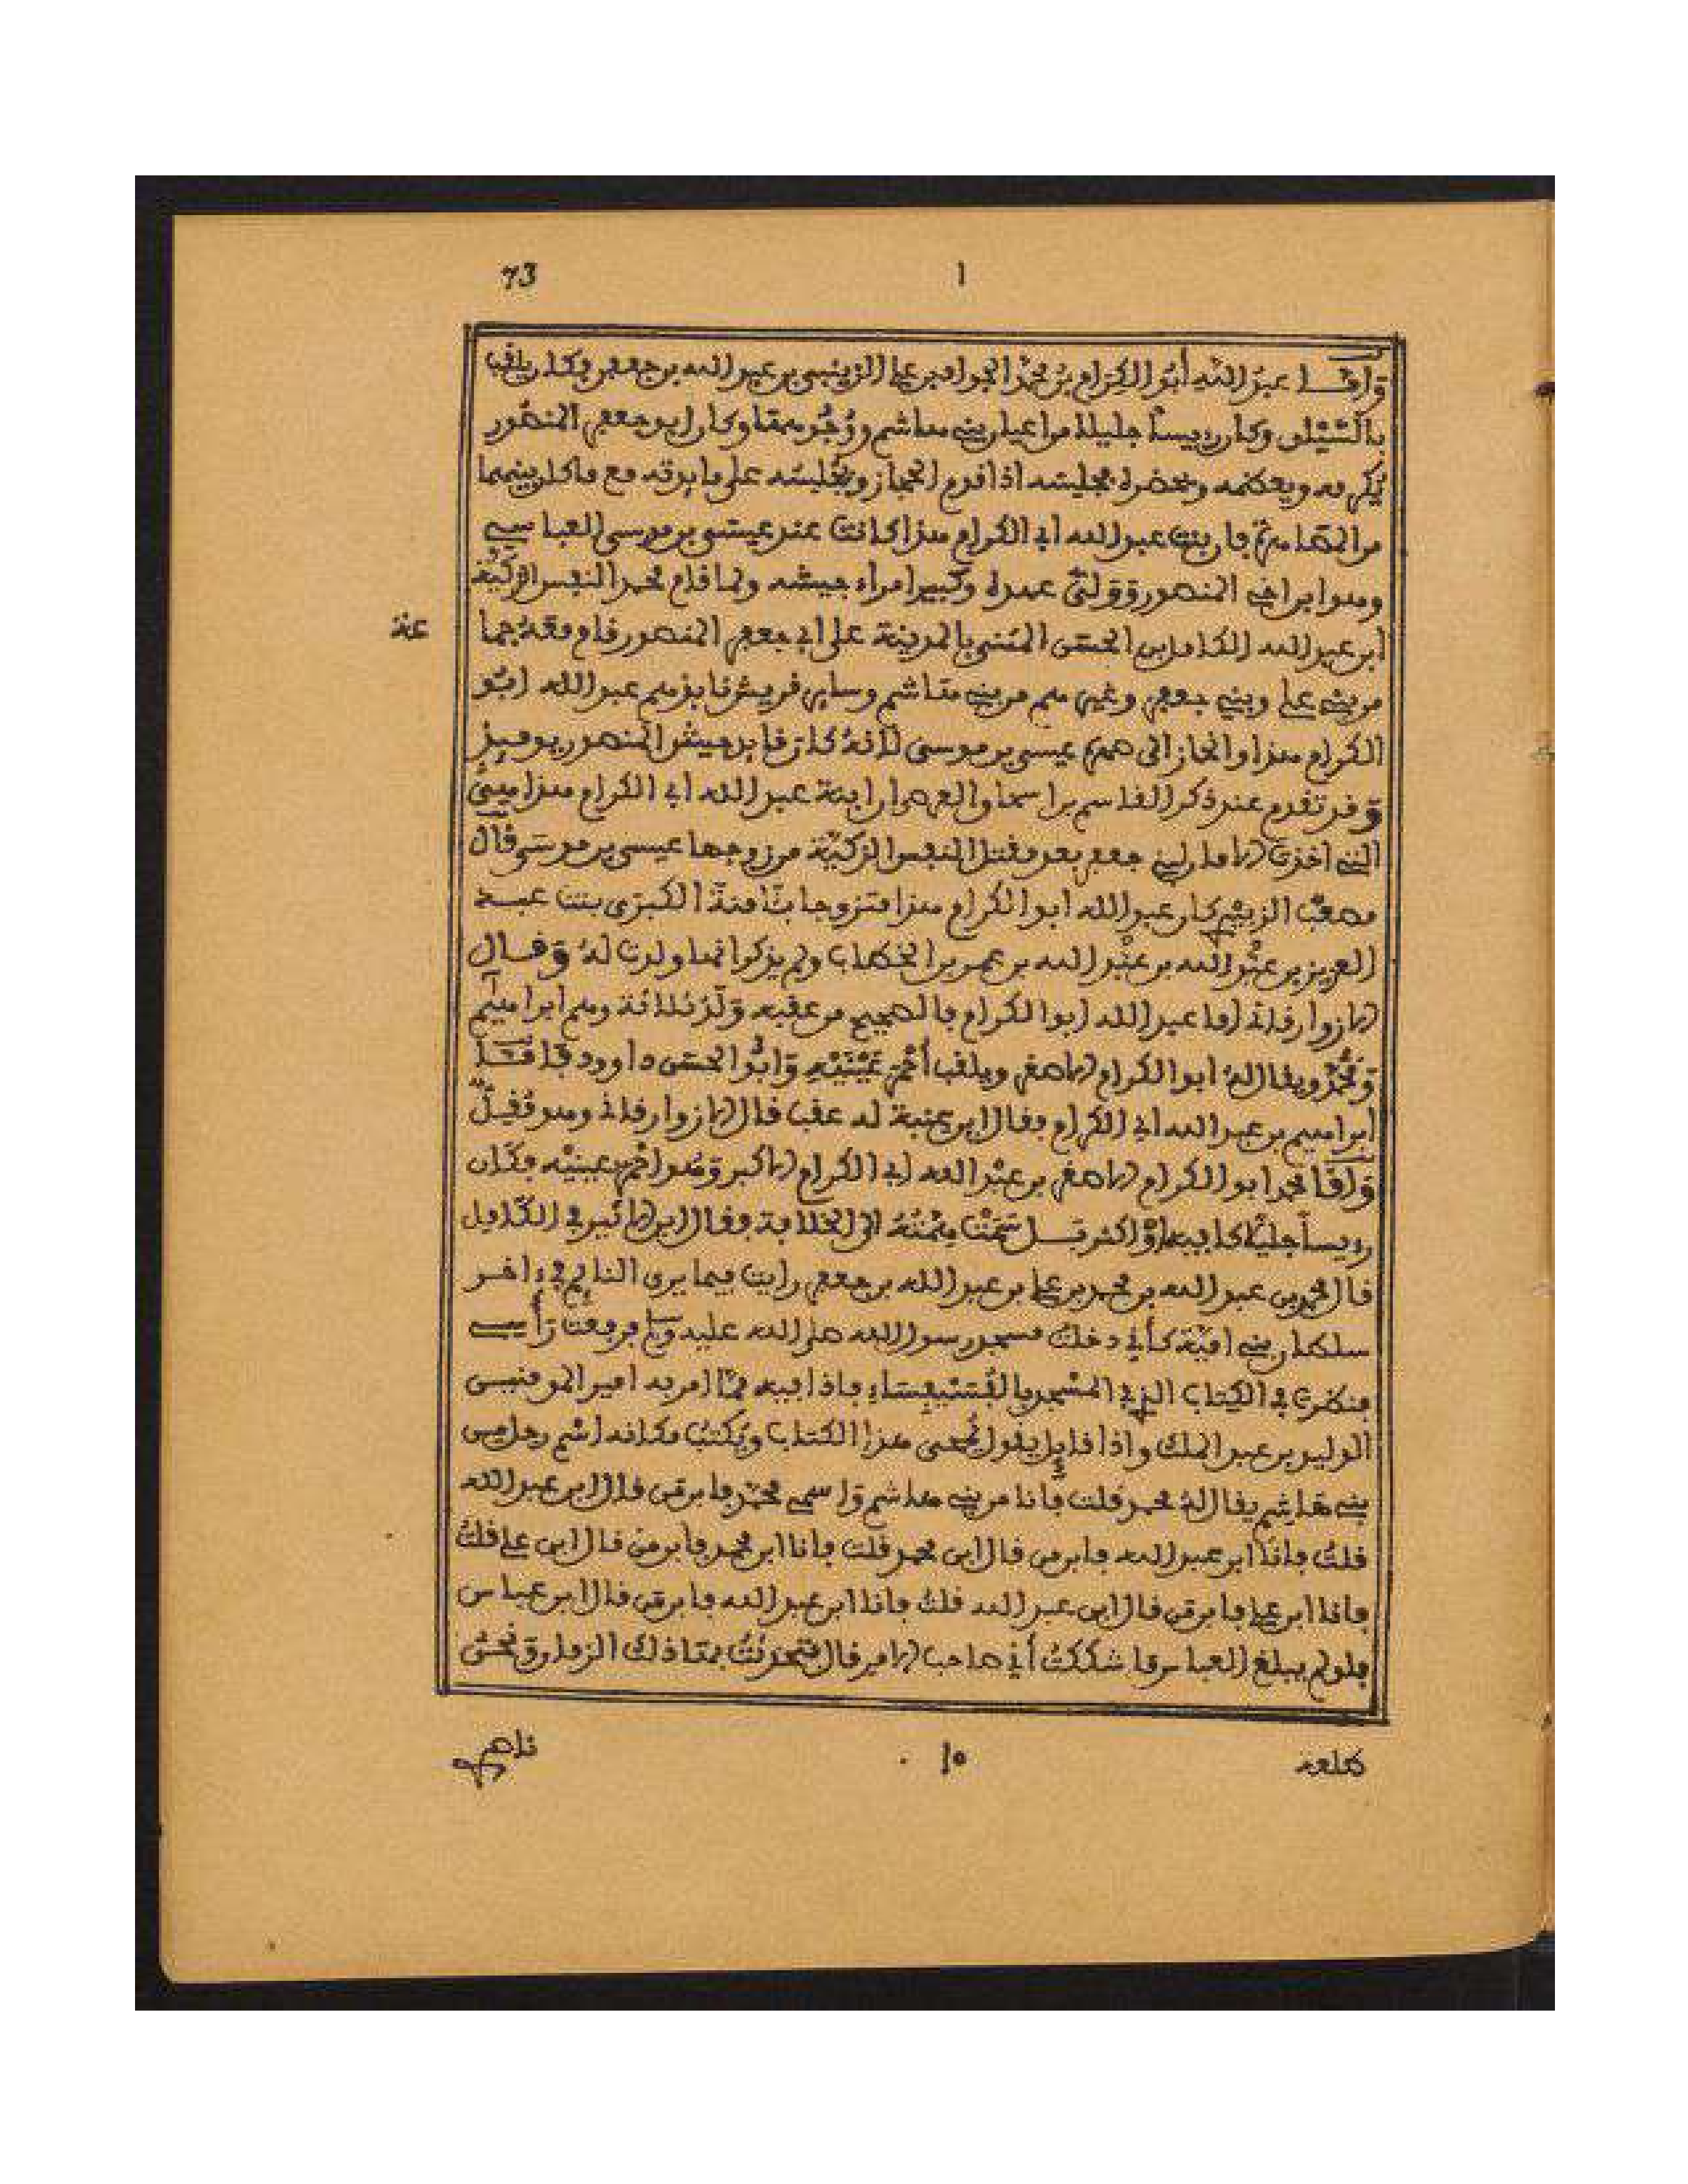 73
١
وأما عبد الله أبو الكرام بن محمد الجواد بن علي الزينبي بن عبد الله بن جعفر فكان يلقب
وكان رئيسا جليلا من أعيان بني هاشم وكان أبو جعفر المنصور
يكرمه ويعظمه ويحضره مجلسه اذا قدم الحجاز ويجلسه على ما برته مع ما كان بينهما
من المصاهرة فان بنت عبد الله ابي الكرام هذا كانت عند عيسى بن موسى العباسي
وهو ابن اخي المنصور وولي عهده وكبير امراء جيشه ولما قام محمد النفس الزكية
ابن عبد الله الكامل بن الحسن المثنى بالمدينة على ابي جعفر المنصور قام معه جما
عة
من بني علي وبني جعفر وغيرهم من بني هاشم وساير قريش عبد الله ابو
الكرام هذا وانحاز الى صهره عيسى بن موسى لانه كان قايد جيش المنصور يوميذ
وقد تقدم عند ذكر القاسم بن اسحاق العـ ان ابنة عبد الله ابي الكرام هذا هي
التي اخذت الامان لبني جعفر بعد مقتل النفس الزكية من زوجها عيسى بن موسى قال
مصعب الزبيري كان عبد الله ابو الكرام هذا متزوجا بآمنة الكبرى بنت عبد
العزيز بن عبد الله بن عبد الله بن عمر بن الخطاب ولم يذكر انها ولدت له وقال
الازوارقاني اما عبد الله ابو الكرام فالصحيح من عقبه ولد ثلاثة وهم ابراهيم
ومحمد ويقال له ابو الكرام الاصغر ويلقب أحمر عينيه وابو الحسن داوود فأما
ابراهيم بن عبد الله ابي الكرام فقال ابن عنبة له عقب قال الازوارقاني وهو مقل
وأما محمد ابو الكرام الاصغر بن عبد الله ابي الكرام الاكبر وهو احمر عينيه فكان
رييسا جليلا كابيه او أكثر بل سمت همته الى الخلافة فقال ابن الاثير في الكامل
قال محمد بن عبد الله بن محمد بن علي بن عبد الله بن جعفر رايت فيما يرى النايم في ءاخر
سلطان بني امية كأني دخلت مسجد رسول الله صلى الله عليه وسلم فرفعت رأسي
فنظرت في الكتاب الذي في المسجد بالفسيفساء فاذا فيه مما امر به امير المومنين
الوليد بن عبد الملك واذا قايل يقول يمحى هذا الكتاب ويكتب مكانه اسم رجل من
بني هاشم يقال له محمد قلت فانا من بني هاشم واسمي محمد فابن من قال ابن عبد الله
قلت فأنا ابن عبد الله فابن من قال ابن محمد قلت فانا ابن محمد فابن من قال ابن علي قلت
فانا ابن علي فابن من قال ابن عبد الله قلت فانا ابن عبد الله فابن من قال ابن عباس
فلو لم يبلغ العباس ما شككت أني صاحب الامر قال فتحدثت بهذا ذلك الزمان ونحن
صلعم
١٠